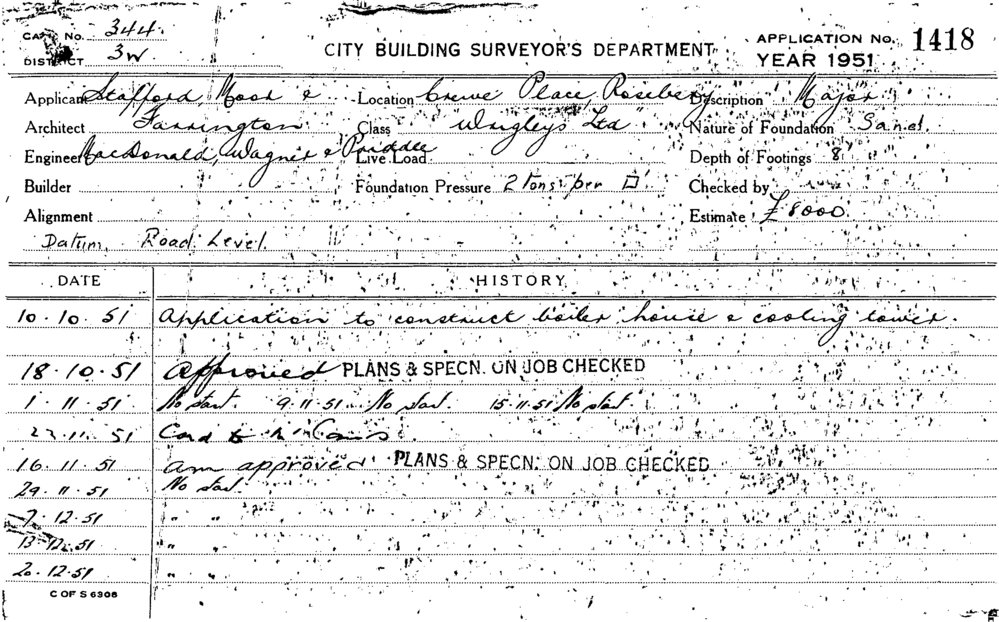 CARD No. 344.
DISTRICT 3W
CITY BUILDING SURVEYOR'S DEPARTMENT
APPLICATION No. 1418
YEAR 1951
Applicant Stafford, Moor & Location Crewe Place Rosebery Description Major
Architect Farrington Class Wrigleys Ltd Nature of Foundation Sand.
Engineer MacDonald, Wagner & Priddle Live Load Depth of Footings 8'
Builder Foundation Pressure 2 Tons per □' Checked by
Alignment Estimate £8000.
Datum Road Level.
DATE HISTORY
10.10.51 Application to construct boiler house & cooling tower.
18.10.51 Approved PLANS & SPECN. ON JOB CHECKED
1.11.51 No start. 9.11.51 No start. 15.11.51 No start
23.11.51 Card to
16.11.51 am approved PLANS & SPECN. ON JOB CHECKED
29.11.51 No start.
7.12.51 " "
13.12.51 " "
20.12.51 " "
C OF S 6308